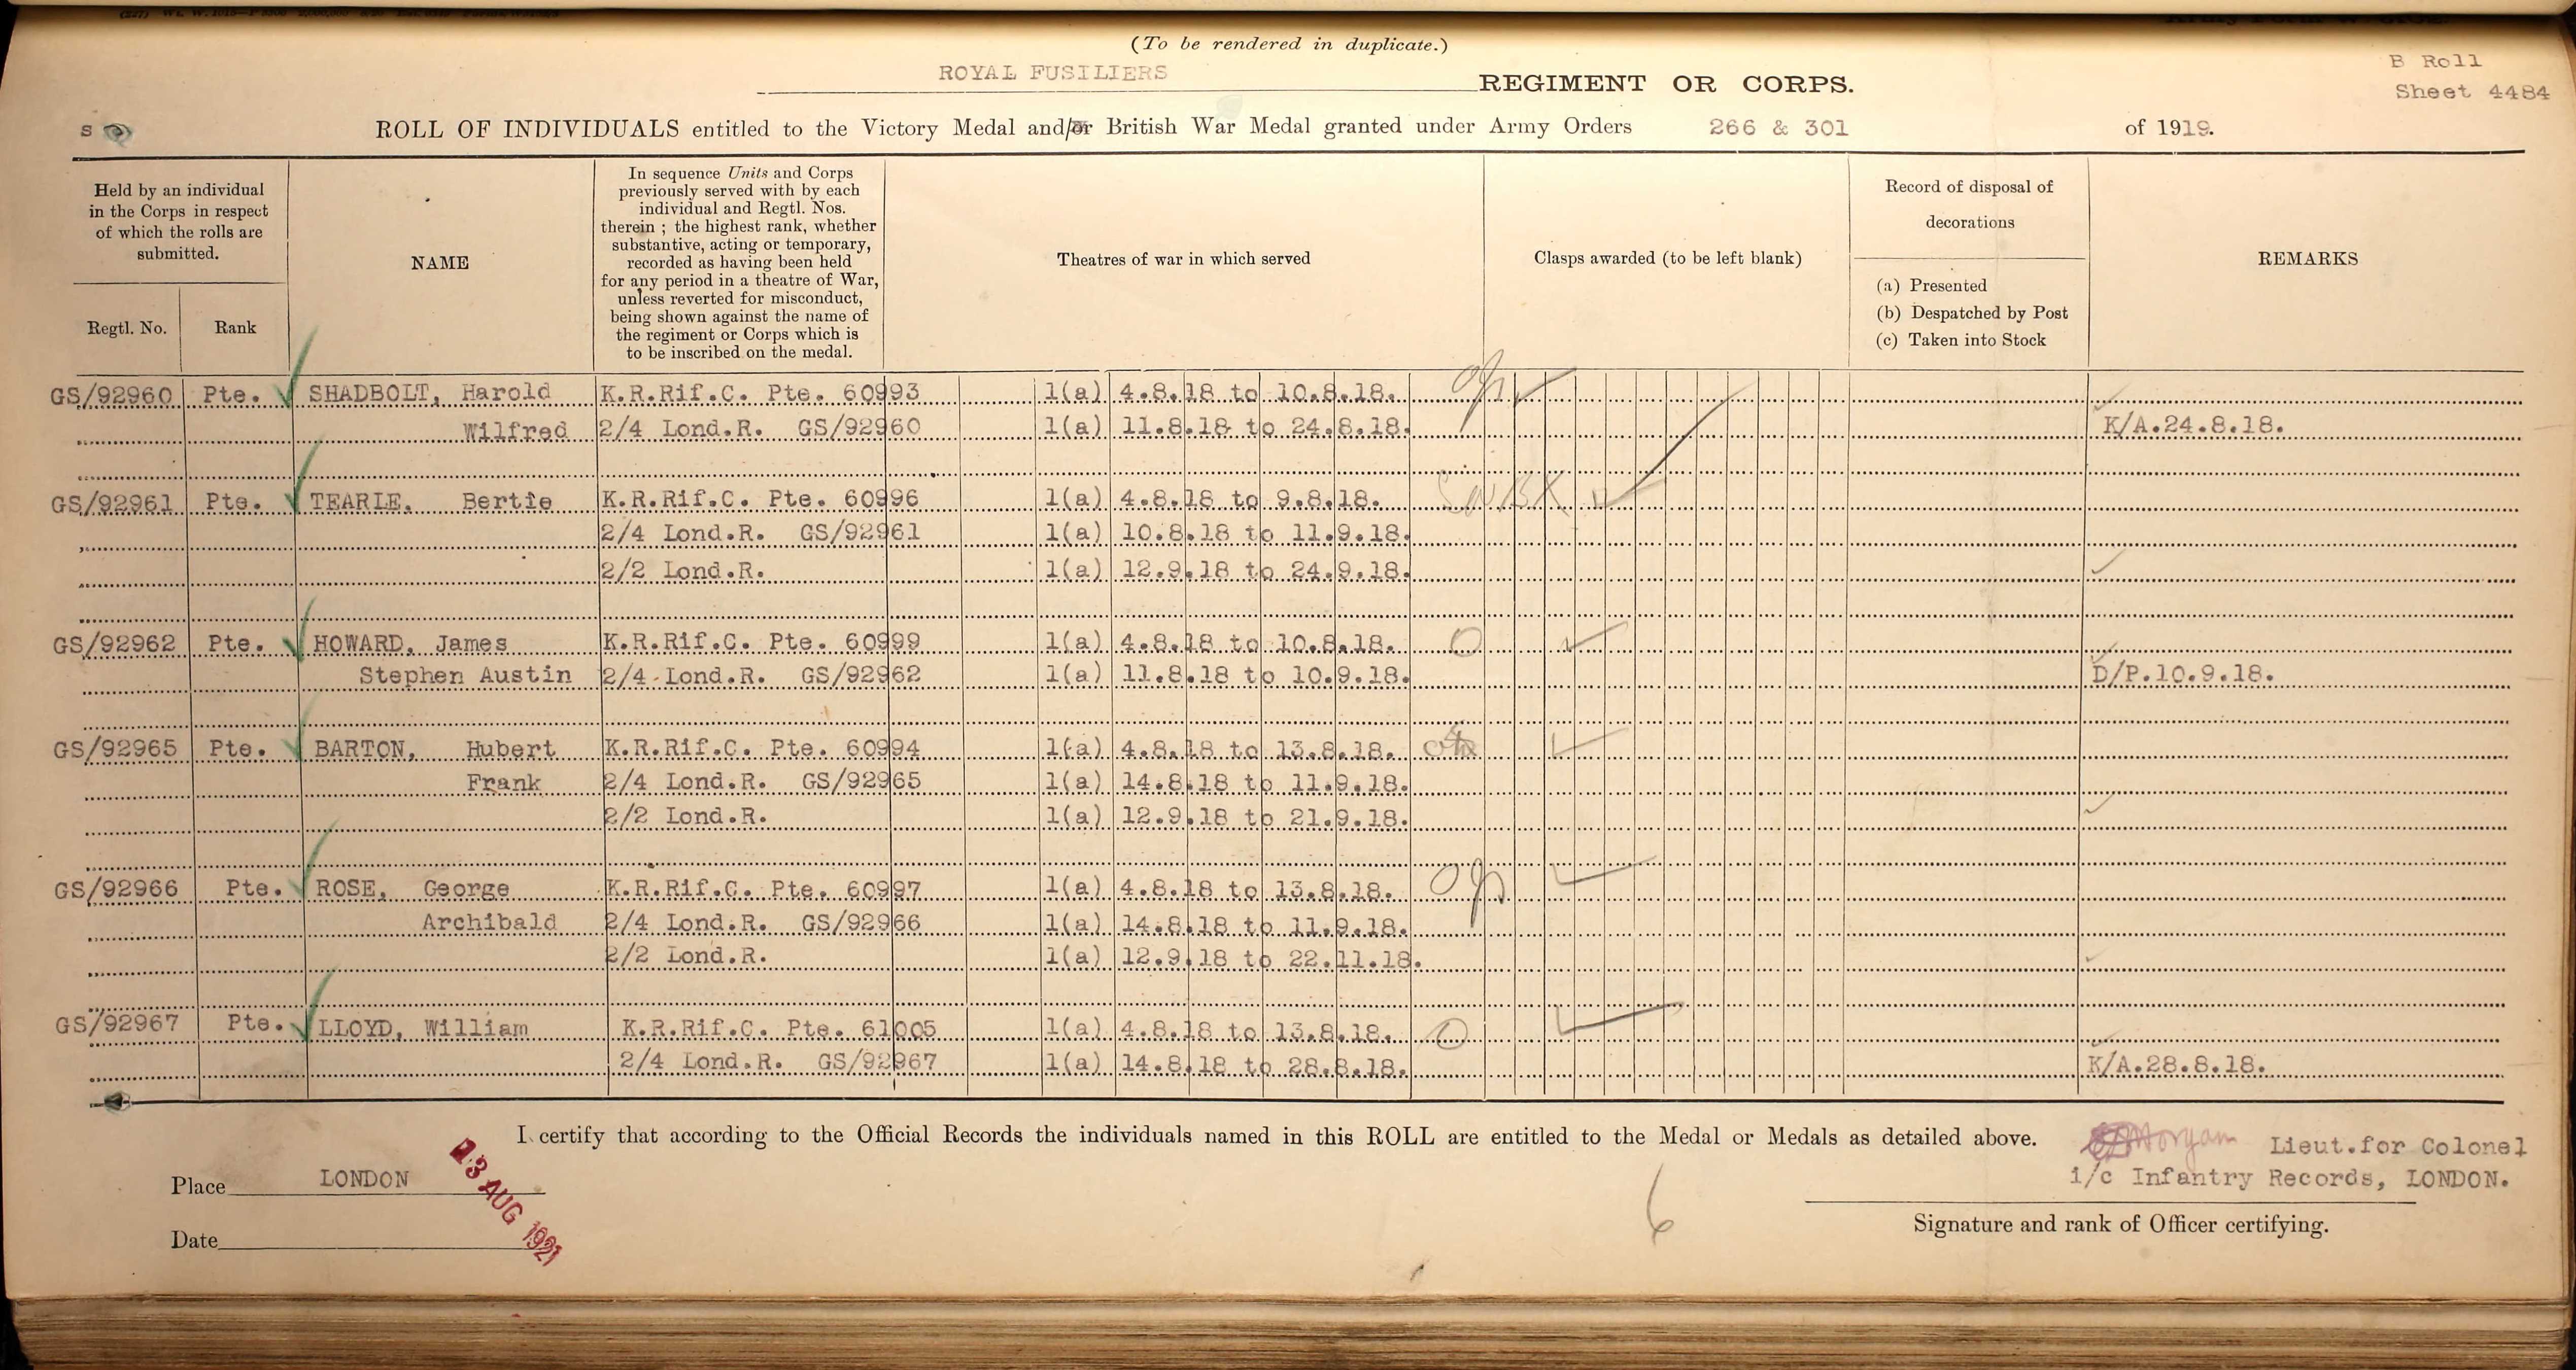 (To be rendered in duplicate.)
ROYAL FUSILIERS REGIMENT OR CORPS.
B Roll
Sheet 4484
S
ROLL OF INDIVIDUALS entitled to the Victory Medal and/or British War Medal granted under Army Orders 266 & 301 of 1919.
Held by an individual
in the Corps in respect
of which the rolls are
submitted.
Regtl. No.
Rank
NAME
In sequence Units and Corps
previously served with by each
individual and Regtl. Nos.
therein ; the highest rank, whether
substantive, acting or temporary,
recorded as having been held
for any period in a theatre of War,
unless reverted for misconduct,
being shown against the name of
the regiment or Corps which is
to be inscribed on the medal.
Theatres of war in which served
Clasps awarded (to be left blank)
Record of disposal of
decorations
(a) Presented
(b) Despatched by Post
(c) Taken into Stock
REMARKS
GS/92960 Pte. SHADBOLT, Harold K.R.Rif.C. Pte. 60993 1(a) 4.8.18 to 10.8.18.
Wilfred 2/4 Lond.R. GS/92960 1(a) 11.8.18 to 24.8.18. K/A.24.8.18.
GS/92961 Pte. TEARLE, Bertie K.R.Rif.C. Pte. 60996 1(a) 4.8.18 to 9.8.18.
2/4 Lond.R. GS/92961 1(a) 10.8.18 to 11.9.18.
2/2 Lond.R. 1(a) 12.9.18 to 24.9.18.
GS/92962 Pte. HOWARD, James K.R.Rif.C. Pte. 60999 1(a) 4.8.18 to 10.8.18. O
Stephen Austin 2/4 Lond.R. GS/92962 1(a) 11.8.18 to 10.9.18. D/P.10.9.18.
GS/92965 Pte. BARTON, Hubert K.R.Rif.C. Pte. 60994 1(a) 4.8.18 to 13.8.18.
Frank 2/4 Lond.R. GS/92965 1(a) 14.8.18 to 11.9.18.
2/2 Lond.R. 1(a) 12.9.18 to 21.9.18.
GS/92966 Pte. ROSE, George K.R.Rif.C. Pte. 60997 1(a) 4.8.18 to 13.8.18.
Archibald 2/4 Lond.R. GS/92966 1(a) 14.8.18 to 11.9.18.
2/2 Lond.R. 1(a) 12.9.18 to 22.11.18.
GS/92967 Pte. LLOYD, William K.R.Rif.C. Pte. 61005 1(a) 4.8.18 to 13.8.18. O
2/4 Lond.R. GS/92967 1(a) 14.8.18 to 28.8.18. K/A.28.8.18.
I certify that according to the Official Records the individuals named in this ROLL are entitled to the Medal or Medals as detailed above.
Morgan Lieut.for Colonel
i/c Infantry Records, LONDON.
Place LONDON
23 AUG 1921
6
Signature and rank of Officer certifying.
Date